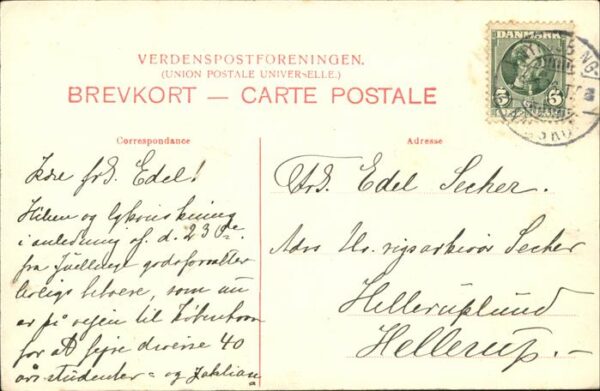 VERDENSPOSTFORENINGEN.
(UNION POSTALE UNIVERSELLE.)
BREVKORT — CARTE POSTALE
DANMARK
5 5
Correspondance
Kære frk. Edel!
Hilsen og lykønskning
i anledning af d. 23de.
fra Juellinge godsforvalter
boligs beboere, som nu
er på vejen til København
for at fejre diverse 40
års studenter- og
Adresse
Frk. Edel Secher.
Adrs Hr. rigsarkivar Secher
Helleruplund
Hellerup.-